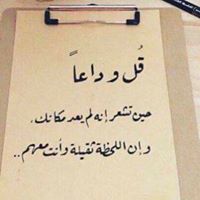 قُل وداعاً
حين تشعر إنه لم يعد مكانك،
وإن اللحظة ثقيلة وأنت معهم..